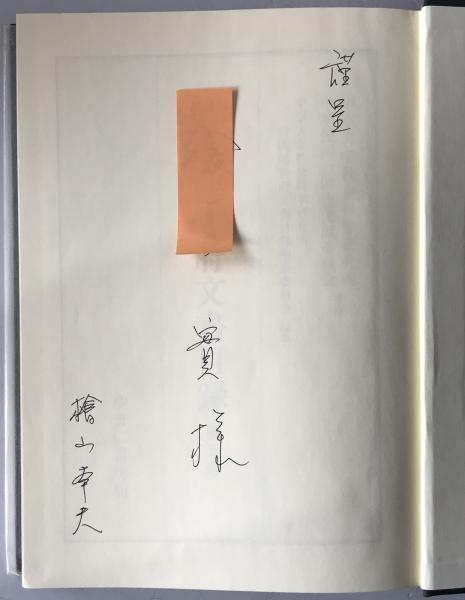 謹呈
實様
檜山幸夫